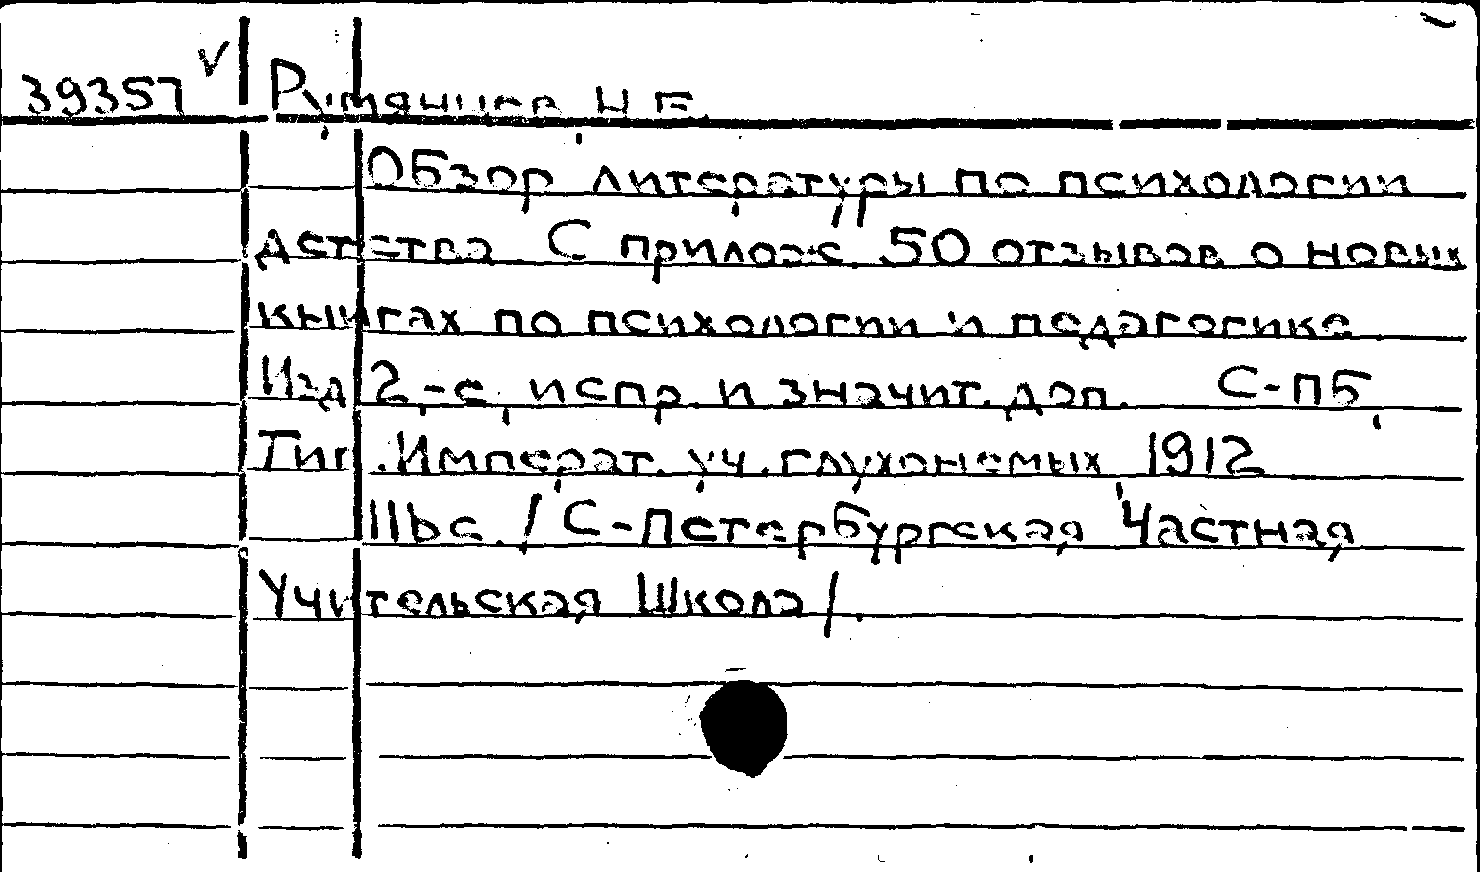 39357 V Румянцев, Н.Е.
Обзор литературы по психологии
детства. С прилож. 50 отзывов о новых
книгах по психологии и педагогике
Изд. 2,-е, испр. и значит. доп. С-ПБ,
Тип. Императ. уч. глухонемых, 1912
116с. / С-Петербургская Частная
Учительская Школа/.